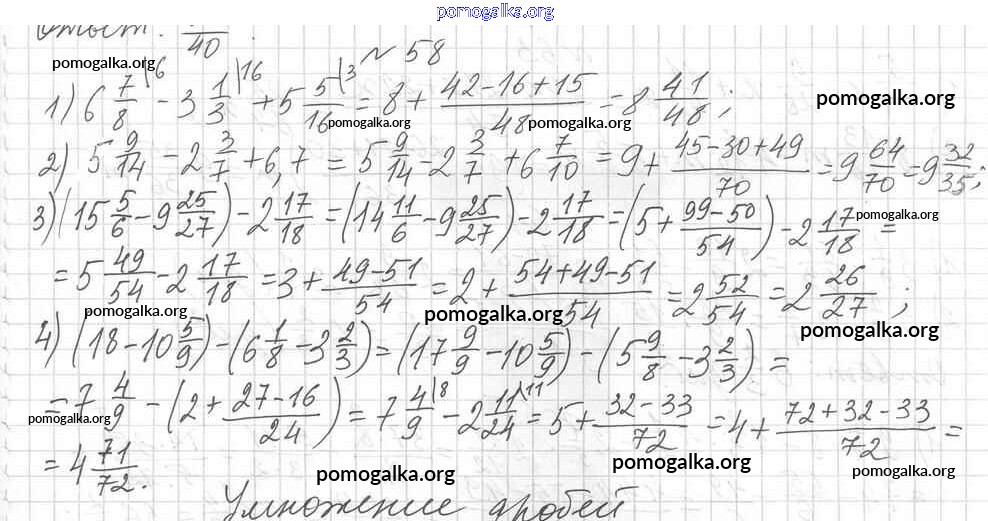 pomogalka.org
Ответ: /40
pomogalka.org
№ 58
1) 6 7/8 |6 − 3 1/3 |16 + 5 5/16 |3 = 8 + (42−16+15)/48 = 8 41/48;
pomogalka.org
pomogalka.org pomogalka.org
2) 5 9/14 − 2 3/7 + 6,7 = 5 9/14 − 2 3/7 + 6 7/10 = 9 + (45−30+49)/70 = 9 64/70 = 9 32/35;
3) (15 5/6 − 9 25/27) − 2 17/18 = (14 11/6 − 9 25/27) − 2 17/18 = (5 + (99−50)/54) − 2 17/18 =
pomogalka.org
= 5 49/54 − 2 17/18 = 3 + (49−51)/54 = 2 + (54+49−51)/54 = 2 52/54 = 2 26/27;
pomogalka.org pomogalka.org pomogalka.org
4) (18 − 10 5/9) − (6 1/8 − 3 2/3) = (17 9/9 − 10 5/9) − (5 9/8 − 3 2/3) =
= 7 4/9 − (2 + (27−16)/24) = 7 4/9 |8 − 2 11/24 |11 = 5 + (32−33)/72 = 4 + (72+32−33)/72 =
pomogalka.org
= 4 71/72.
pomogalka.org pomogalka.org pomogalka.org
Умножение дробей